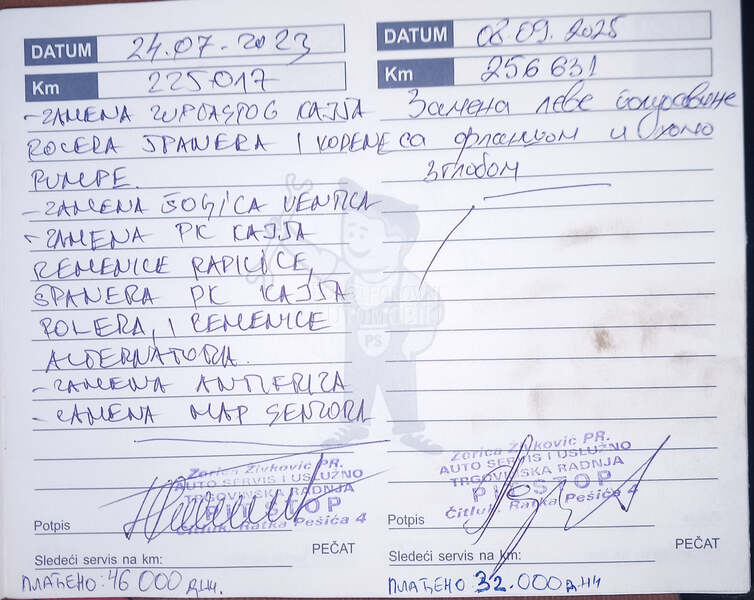 DATUM 24.07.2023
Km 225017
-ZAMENA ZUPČASTOG KAJŠA
ROLERA ŠPANERA I VODENE
PUMPE.
-ZAMENA ŠOLJICA VENTILA
-ZAMENA PK KAJŠA
REMENICE RADILICE,
ŠPANERA PK KAJŠA
ROLERA, I REMENICE
ALTERNATORA.
-ZAMENA ANTIFRIZA
-ZAMENA MAP SENZORA
Zorica Živković PR.
AUTO SERVIS I USLUŽNO
TRGOVINSKA RADNJA
PIT STOP
Čitluk, Ratka Pešića 4
Potpis
PEČAT
Sledeći servis na km:
ПЛАЋЕНО: 46 000 дин.
DATUM 08.09.2025
Km 256631
Замена леве полуосовине
са фланцом и хомо
зглобом
Zorica Živković PR.
AUTO SERVIS I USLUŽNO
TRGOVINSKA RADNJA
PIT STOP
Čitluk, Ratka Pešića 4
Potpis
PEČAT
Sledeći servis na km:
ПЛАЋЕНО 32.000 дин